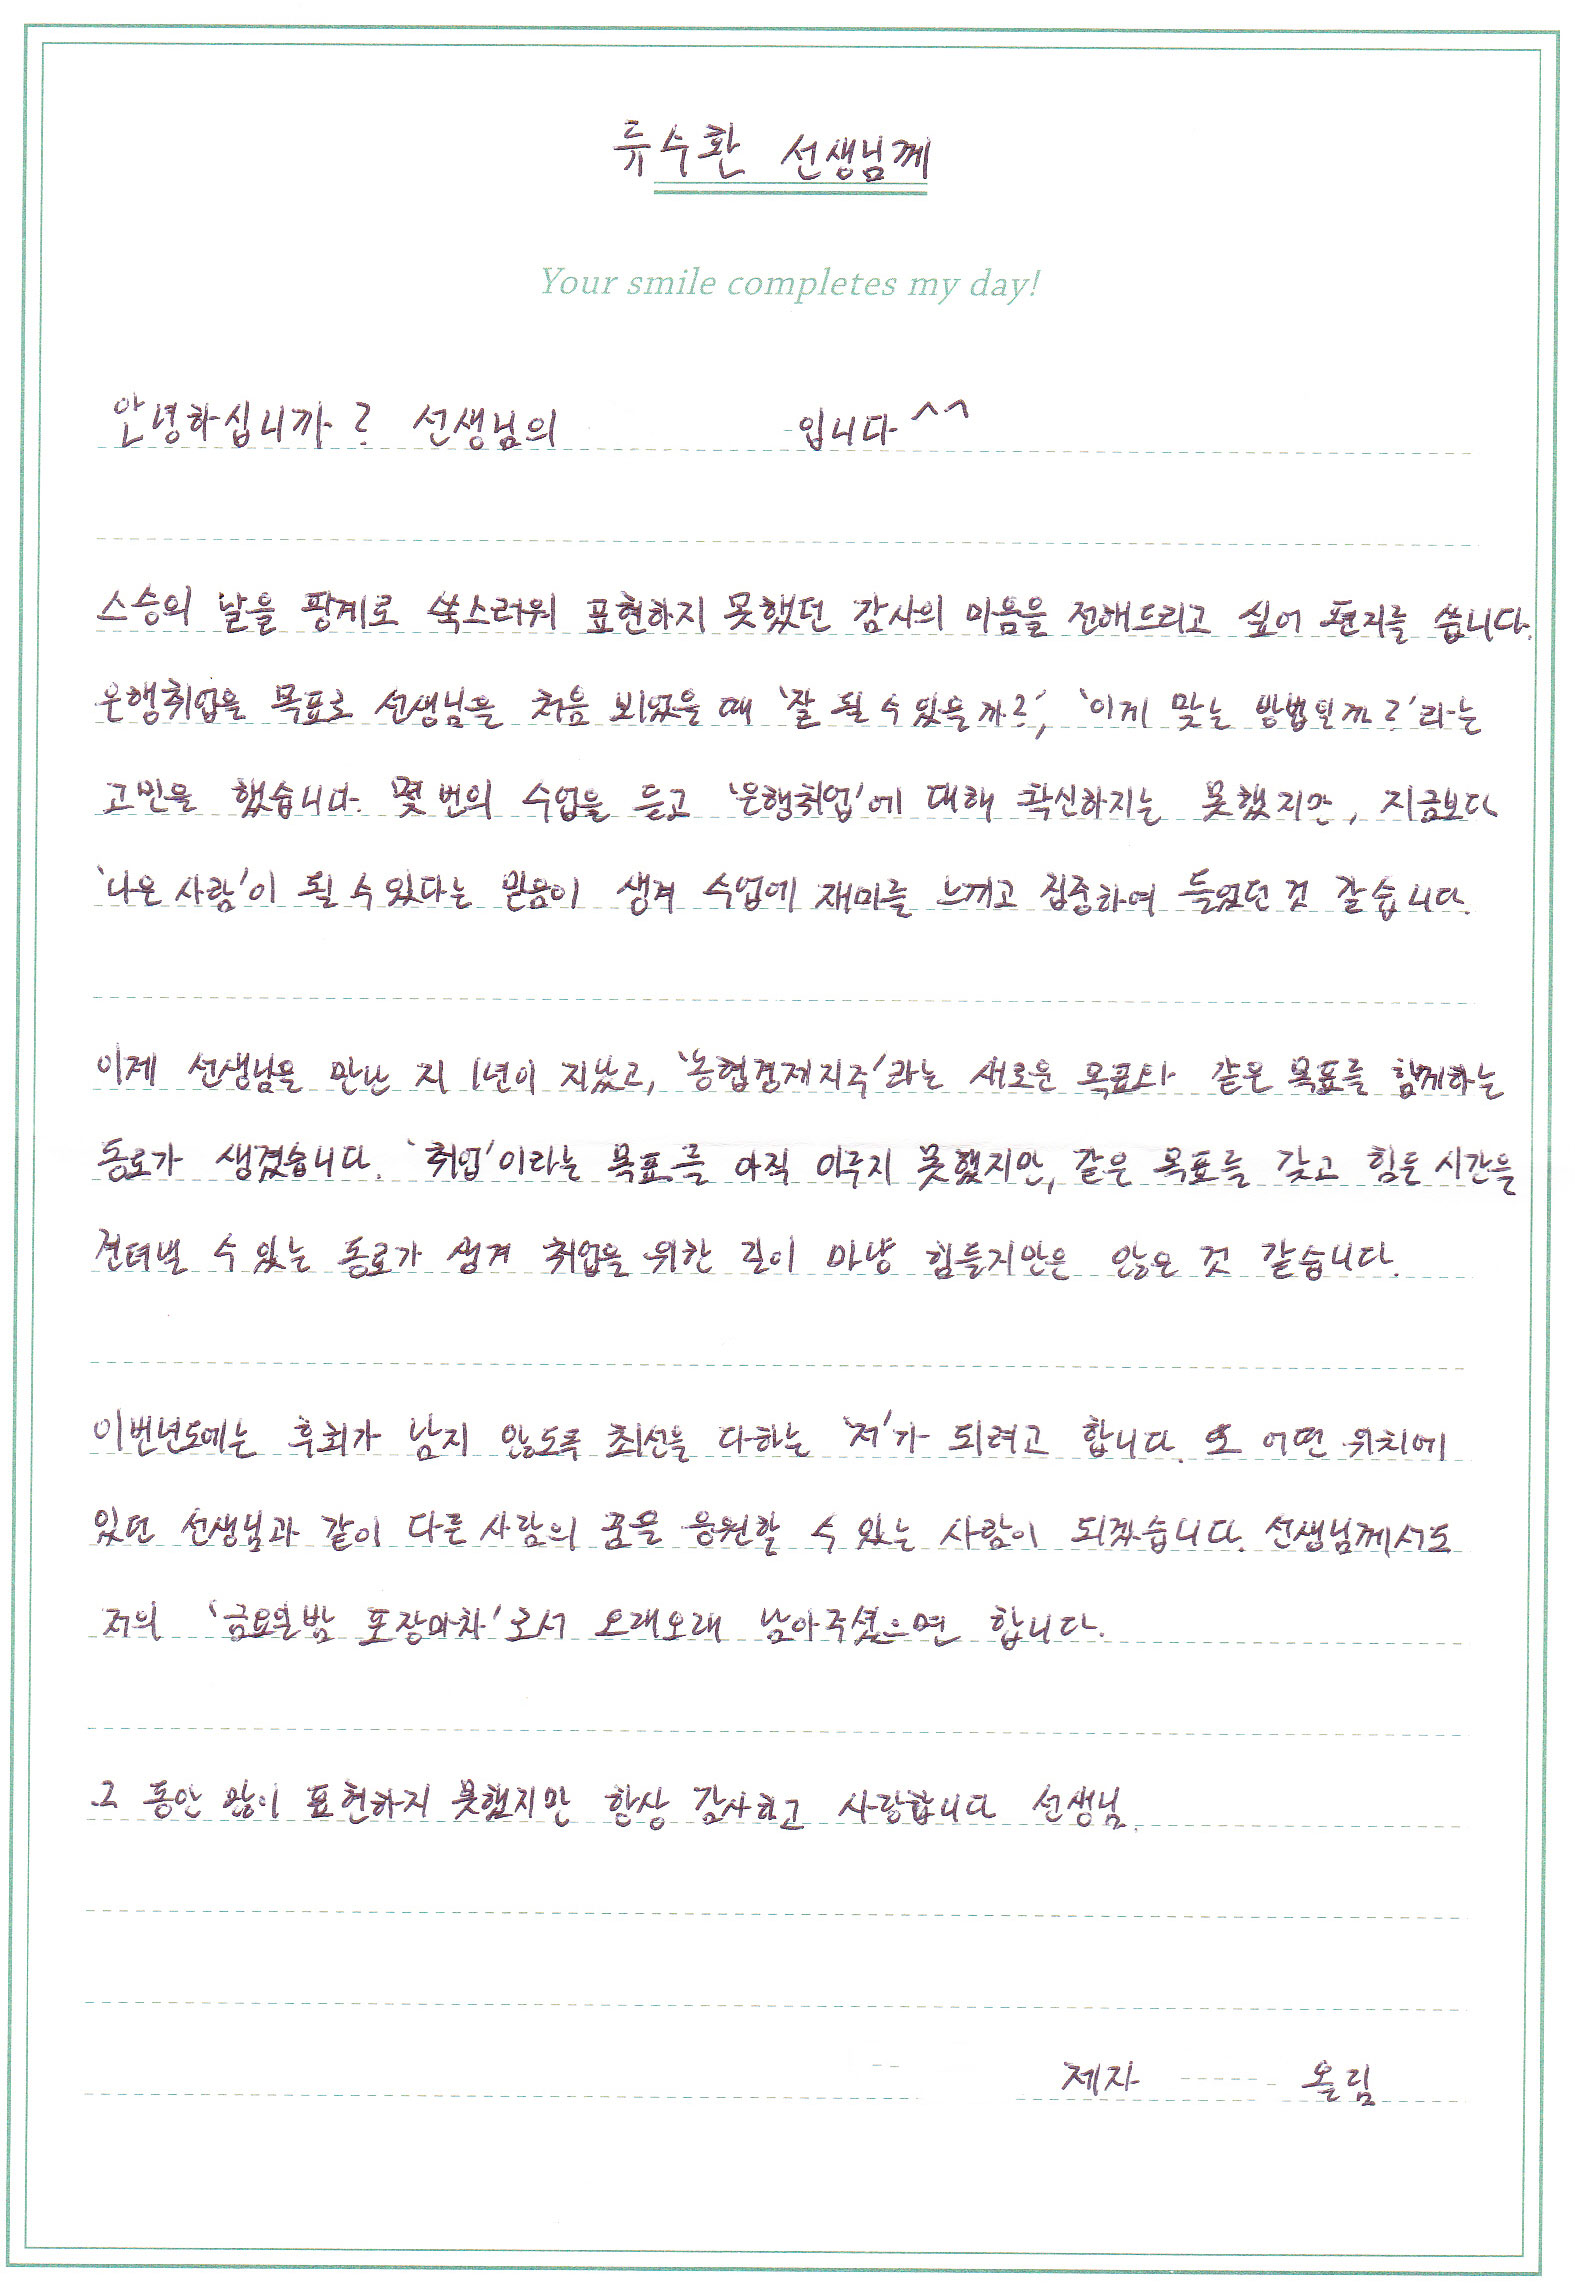 류수환 선생님께
Your smile completes my day!
안녕하십니까? 선생님의 입니다^^
스승의 날을 핑계로 쑥스러워 표현하지 못했던 감사의 마음을 전해드리고 싶어 편지를 씁니다.
은행취업을 목표로 선생님을 처음 뵈었을 때 '잘 될 수 있을까?', '이게 맞는 방법일까?'라는
고민을 했습니다. 몇 번의 수업을 듣고 '은행취업'에 대해 확신하지는 못했지만, 지금보다
'나은 사람'이 될 수 있다는 믿음이 생겨 수업에 재미를 느끼고 집중하여 들었던 것 같습니다.
이제 선생님을 만난 지 1년이 지났고, '농협경제지주'라는 새로운 목표와 같은 목표를 함께하는
동료가 생겼습니다. '취업'이라는 목표를 아직 이루지 못했지만, 같은 목표를 갖고 힘든 시간을
견뎌낼 수 있는 동료가 생겨 취업을 위한 길이 마냥 힘들지만은 않은 것 같습니다.
이번년도에는 후회가 남지 않도록 최선을 다하는 '저'가 되려고 합니다. 또 어떤 위치에
있던 선생님과 같이 다른 사람의 꿈을 응원할 수 있는 사람이 되겠습니다. 선생님께서도
저의 '금요일밤 포장마차'로서 오래오래 남아주셨으면 합니다.
그 동안 많이 표현하지 못했지만 항상 감사하고 사랑합니다 선생님.
제자 올림